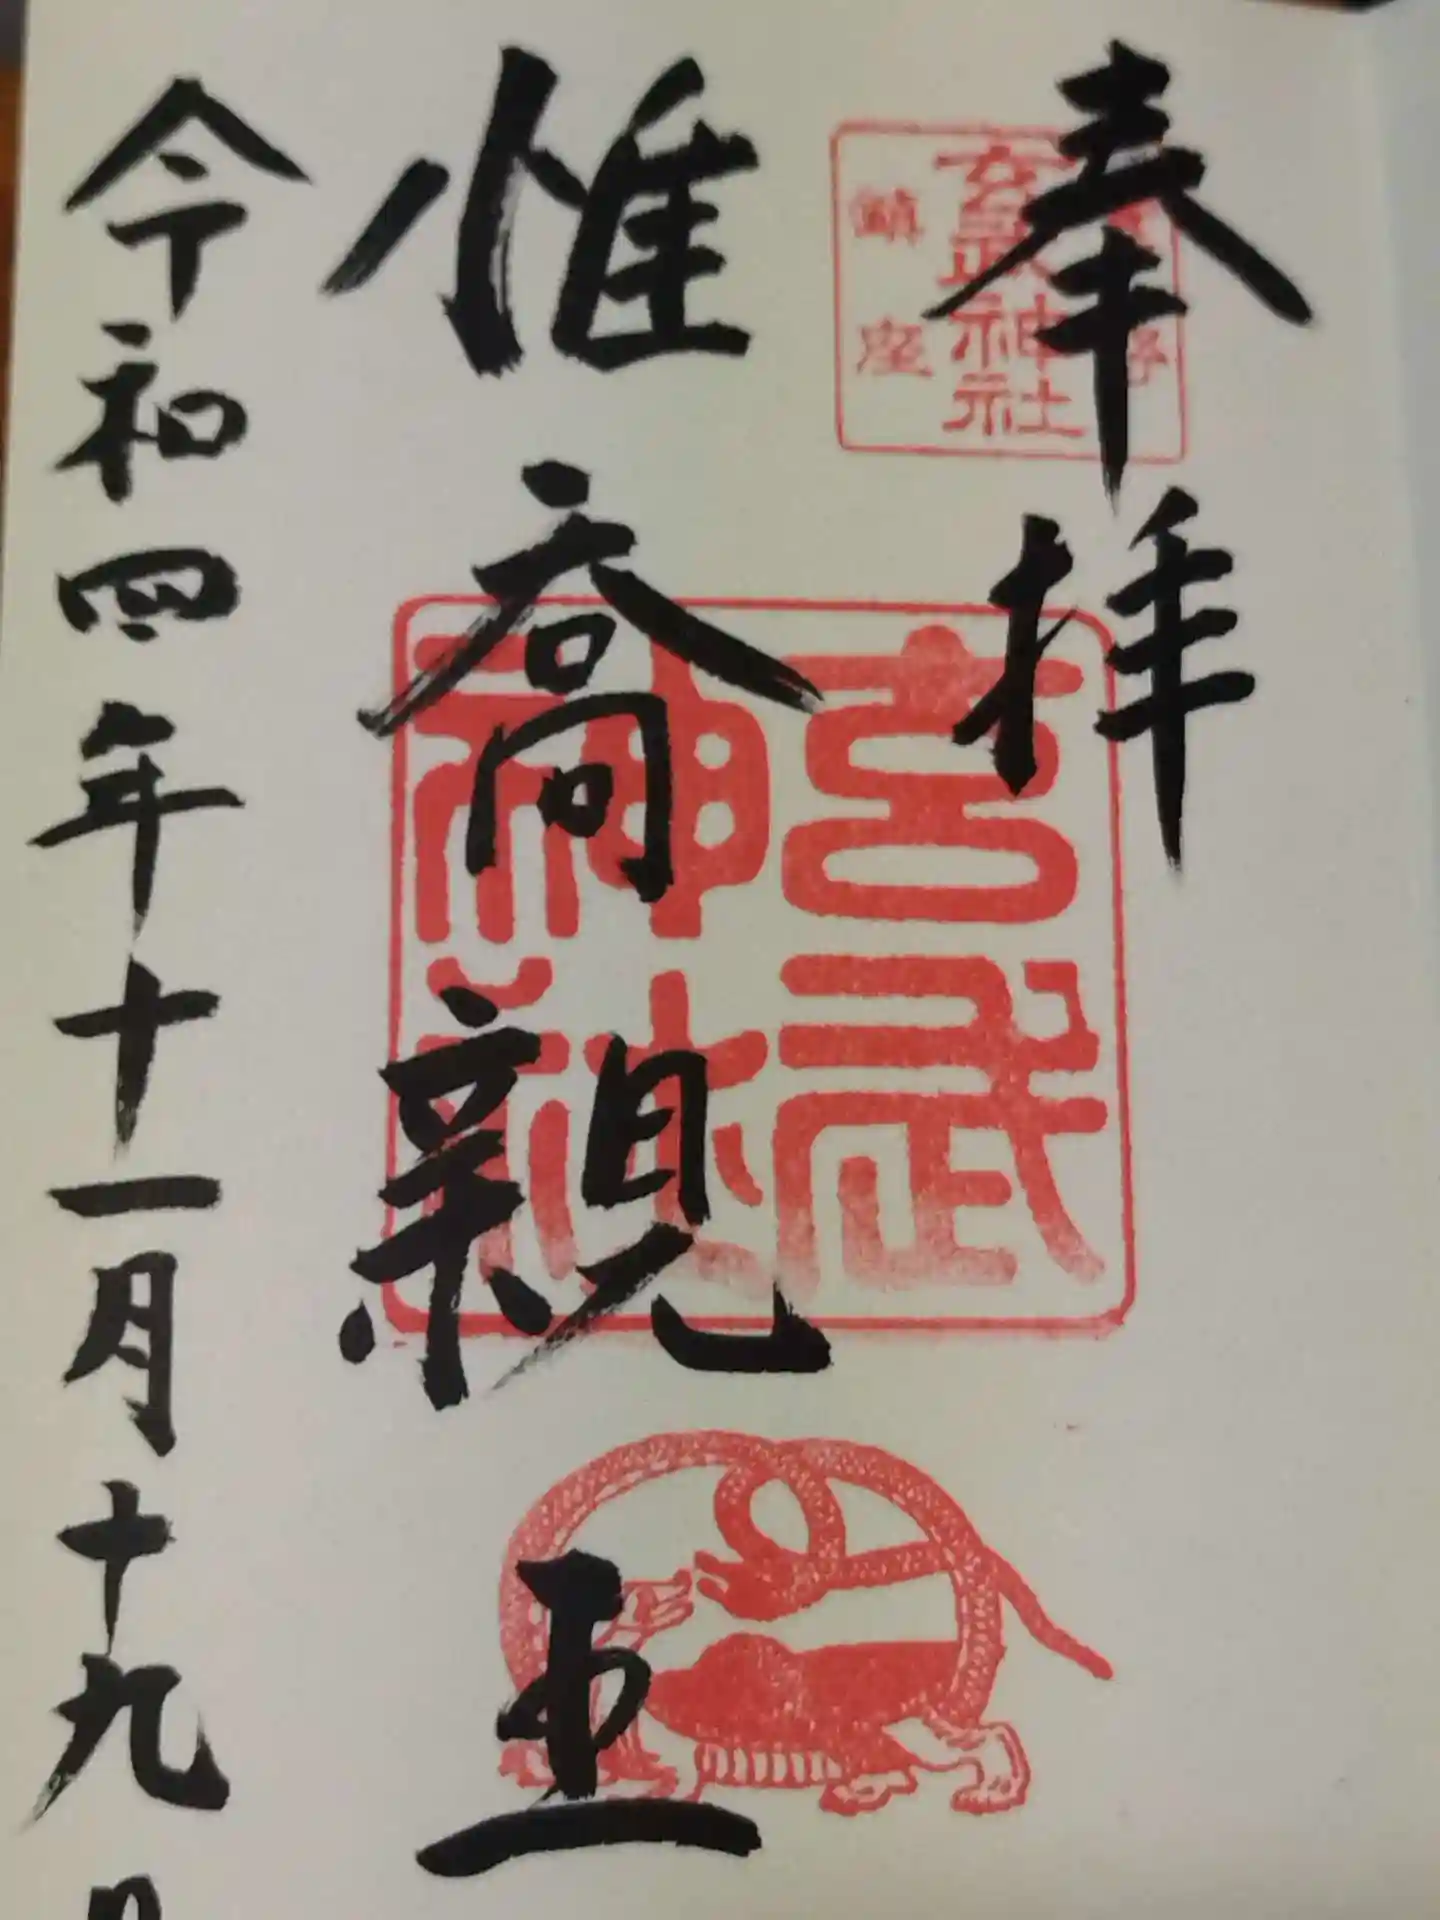 奉拝
玄武神社
鎮座
惟喬親王
玄武
神社
令和四年十一月十九日